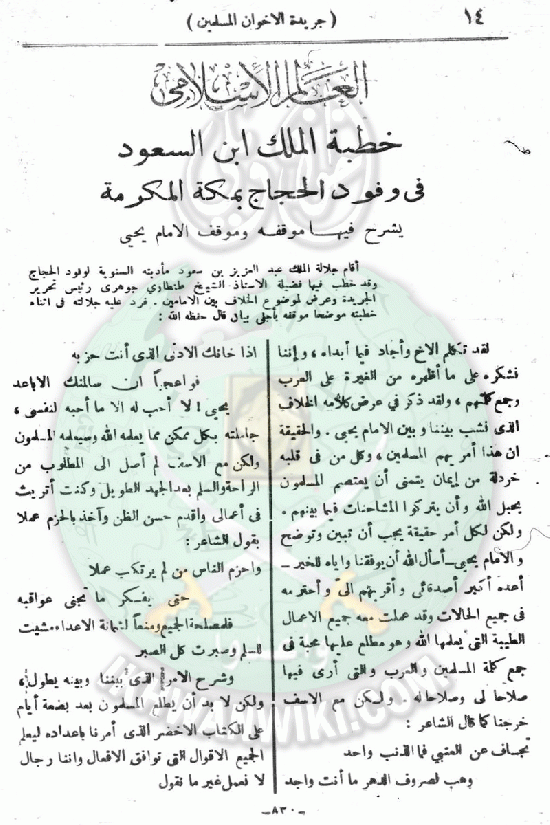 ١٤
( جريدة الاخوان المسلمين )
العالم الاسلامى
خطبة الملك ابن السعود
فى وفود الحجاج بمكة المكرمة
يشرح فيها موقفه وموقف الامام يحيى
أقام جلالة الملك عبد العزيز بن سعود مأدبته السنوية لوفود الحجاج
وقد خطب فيها فضيلة الاستاذ الشيخ طنطاوي جوهرى رئيس تحرير
الجريدة وعرض لموضوع الخلاف بين الامامين . فرد عليه جلالته فى اثناء
خطبته موضحا موقفه بأجلى بيان قال حفظه الله :
لقد تكلم الاخ وأجاد فيما أبداه ، وإننا
نشكره على ما أظهره من الغيرة على العرب
وجمع كلمتهم ، ولقد ذكر فى عرض كلامه الخلاف
الذى نشب بيننا وبين الامام يحيى . والحقيقة
ان هذا أمر يهم المسلمين ، وكل من فى قلبه
خردلة من إيمان يتمنى أن يعتصم المسلمون
بحبل الله وأن يتركوا المشاحنات فيما بينهم .
ولكن لكل أمر حقيقة يجب أن تبين وتوضح
والامام يحيى ــ أسأل الله أن يوفقنا واياه للخير ــ
أعده أكبر أصدقائى وأقربهم الى وأحترمه
فى جميع الحالات وقد عملت معه جميع الاعمال
الطيبة التى يعلمها الله وهو مطلع عليها محبة فى
جمع كلمة المسلمين والعرب والتى أرى فيها
صلاحا لى وصلاحا له . ولكن مع الاسف
خرجنا كما قال الشاعر :
تجاف عن العتبي فما الذنب واحد
وهب لصروف الدهر ما أنت واجد
اذا خانك الادنى الذى أنت حزبه
فواعجباً ان سالمتك الاباعد
يحيى ! لا أحب له الا ما أحبه لنفسى ،
جاملته بكل ممكن مما يعلمه الله وسيعلمه المسلمون
ولكن مع الاسف لم أصل الى المطلوب من
الراحة والسلم بعد الجهد الطويل وكنت أتريث
فى أعمالى وأقدم حسن الظن وآخذ بالحزم عملا
بقول الشاعر :
واحزم الناس من لم يرتكب عملا
حتى يفكر ما تجنى عواقبه
فلمصلحة الجميع ومنعاً لشماتة الاعداء مشيت
للسلم وصبرت كل الصبر
وشرح الامر الذى بيننا وبينه يطول ،
ولكن لا بد أن يطلع المسلمون بعد بضعة أيام
على الكتاب الاخضر الذى أمرنا باعداده ليعلم
الجميع الاقوال التى توافق الافعال واننا رجال
لا نعمل غير ما نقول
ــ ٨٣٠ ــ
ikhwanwiki.com